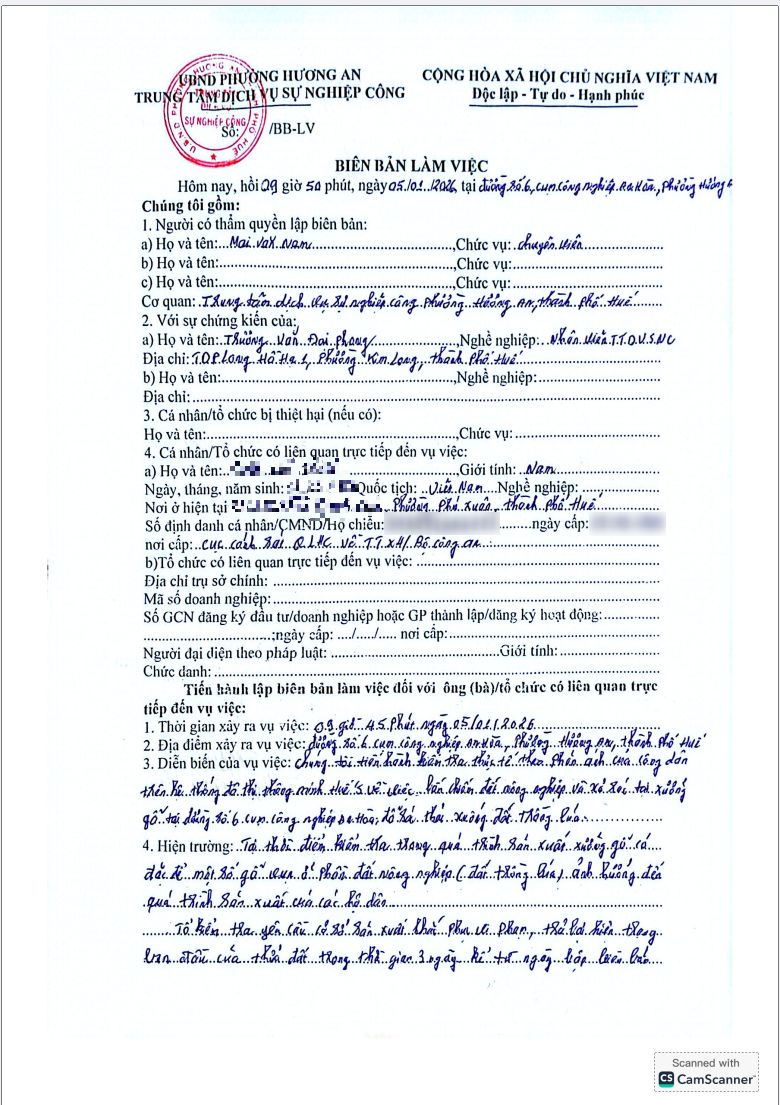 UBND PHƯỜNG HƯƠNG AN
TRUNG TÂM DỊCH VỤ SỰ NGHIỆP CÔNG
Số: /BB-LV
CỘNG HÒA XÃ HỘI CHỦ NGHĨA VIỆT NAM
Độc lập - Tự do - Hạnh phúc
SỰ NGHIỆP CÔNG
BIÊN BẢN LÀM VIỆC
Hôm nay, hồi 09 giờ 50 phút, ngày 05/01/2026, tại đường số 6, cụm công nghiệp An Hòa, Phường Hương A
Chúng tôi gồm:
1. Người có thẩm quyền lập biên bản:
a) Họ và tên: Mai Văn Nam, Chức vụ: chuyên viên
b) Họ và tên:, Chức vụ:
c) Họ và tên:, Chức vụ:
Cơ quan: Trung tâm dịch vụ sự nghiệp công phường Hương An, thành phố Huế
2. Với sự chứng kiến của:
a) Họ và tên: Trương Văn Đại Phong, Nghề nghiệp: Nhân viên TTDVSNC
Địa chỉ: TDP Long Hồ Hạ 1, Phường Kim Long, thành phố Huế
b) Họ và tên:, Nghề nghiệp:
Địa chỉ:
3. Cá nhân/tổ chức bị thiệt hại (nếu có):
Họ và tên:, Chức vụ:
4. Cá nhân/Tổ chức có liên quan trực tiếp đến vụ việc:
a) Họ và tên:, Giới tính: Nam
Ngày, tháng, năm sinh: Quốc tịch: Việt Nam Nghề nghiệp:
Nơi ở hiện tại Phường Phú Xuân, thành phố Huế
Số định danh cá nhân/CMND/Hộ chiếu: ngày cấp:
nơi cấp: cục cảnh sát QLHC về TTXH/ Bộ công an
b)Tổ chức có liên quan trực tiếp đến vụ việc:
Địa chỉ trụ sở chính:
Mã số doanh nghiệp:
Số GCN đăng ký đầu tư/doanh nghiệp hoặc GP thành lập/đăng ký hoạt động:
;ngày cấp: ..../...../..... nơi cấp:
Người đại diện theo pháp luật: Giới tính:
Chức danh:
Tiến hành lập biên bản làm việc đối với ông (bà)/tổ chức có liên quan trực
tiếp đến vụ việc:
1. Thời gian xảy ra vụ việc: 09 giờ 45 phút ngày 05/01/2026
2. Địa điểm xảy ra vụ việc: đường số 6, cụm công nghiệp An Hòa, Phường Hương An, thành phố Huế
3. Diễn biến của vụ việc: chúng tôi tiến hành kiểm tra thực tế theo phản ánh của công dân
trên hệ thống đô thị thông minh Huế S về việc lấn chiếm đất nông nghiệp và xả thải tại xưởng
gỗ tại đường số 6 cụm công nghiệp An Hòa; đổ rác thải xuống đất trồng lúa
4. Hiện trường: Tại thời điểm kiểm tra trong quá trình sản xuất xưởng gỗ có
để một số gỗ vụn ở phần đất nông nghiệp (đất trồng lúa) ảnh hưởng đến
quá trình sản xuất của các hộ dân
Tổ kiểm tra yêu cầu cơ sở sản xuất khắc phục vi phạm, trả lại hiện trạng
ban đầu của thửa đất trong thời gian 3 ngày kể từ ngày lập biên bản
Scanned with
CS CamScanner